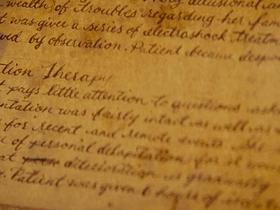 wealth of troubles regarding her fa
t was give a series of electroshock treatm
wed by observation. Patient became despon
tion Therapy
t pays little attention to questions aske
ntation was fairly intact as well as
for recent and remote events. She
of personal dehabitation, for it wou
at deterioration is gradually
Patient was given 6 hours of